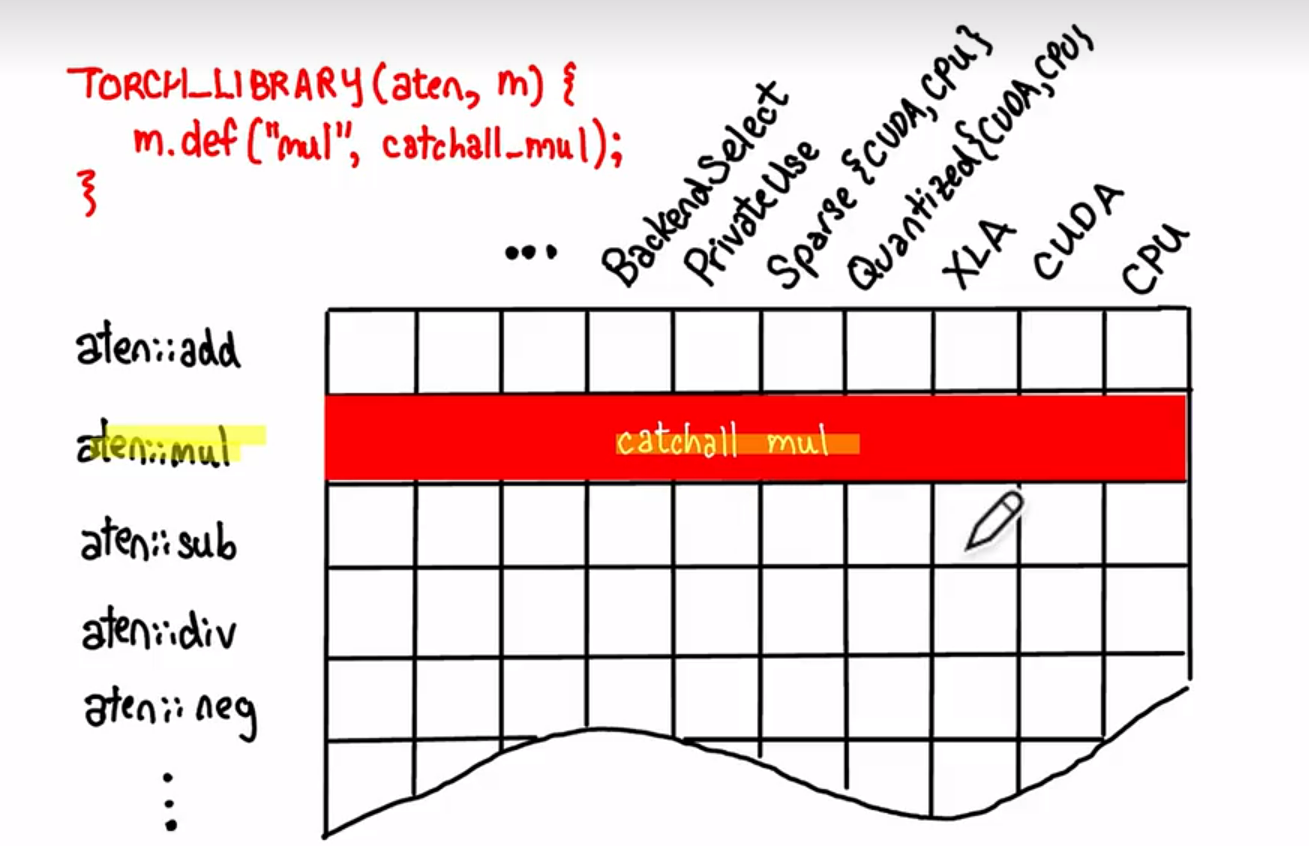 TORCH_LIBRARY(aten, m) {
m.def("mul", catchall_mul);
}
...
BackendSelect
PrivateUse
Sparse {CUDA, CPU}
Quantized {CUDA, CPU}
XLA
CUDA
CPU
aten::add
aten::mul
catchall mul
aten::sub
aten::div
aten::neg
⋮